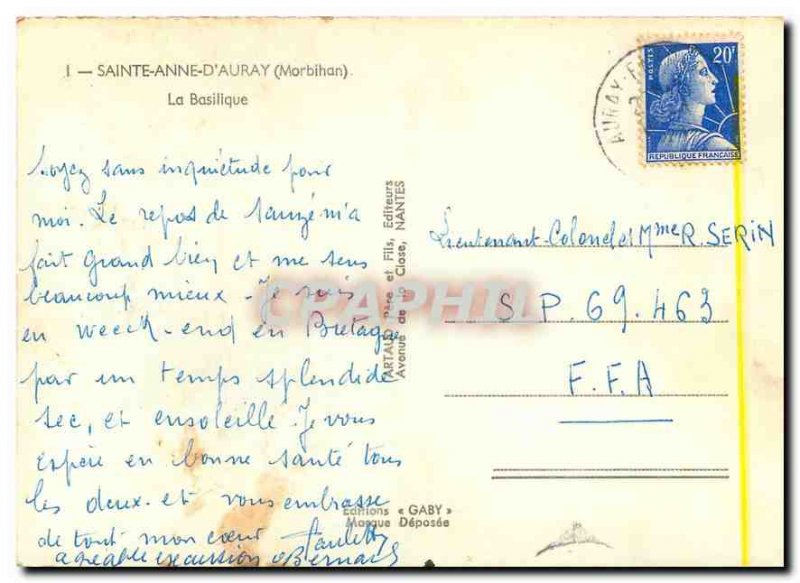 1 — SAINTE-ANNE-D'AURAY (Morbihan).
La Basilique
Soyez sans inquiétude pour
moi. Le repos de m'a
fait grand bien et me sens
beaucoup mieux. Je suis
en weeck-end en Bretagne
par un temps splendide
sec, et ensoleillé. Je vous
espère en bonne santé tous
les deux. et vous embrasse
de tout mon cœur Paulette
agréable excursion Bernard
ARTAUD Père et Fils, Editeurs
Avenue de la Close, NANTES
Editions « GABY »
Marque Déposée
AURAY
POSTES
20F
REPUBLIQUE FRANÇAISE
Lieutenant-Colonel et Mme R. SERIN
S P. 69.463
F. F. A
CPAPHIL